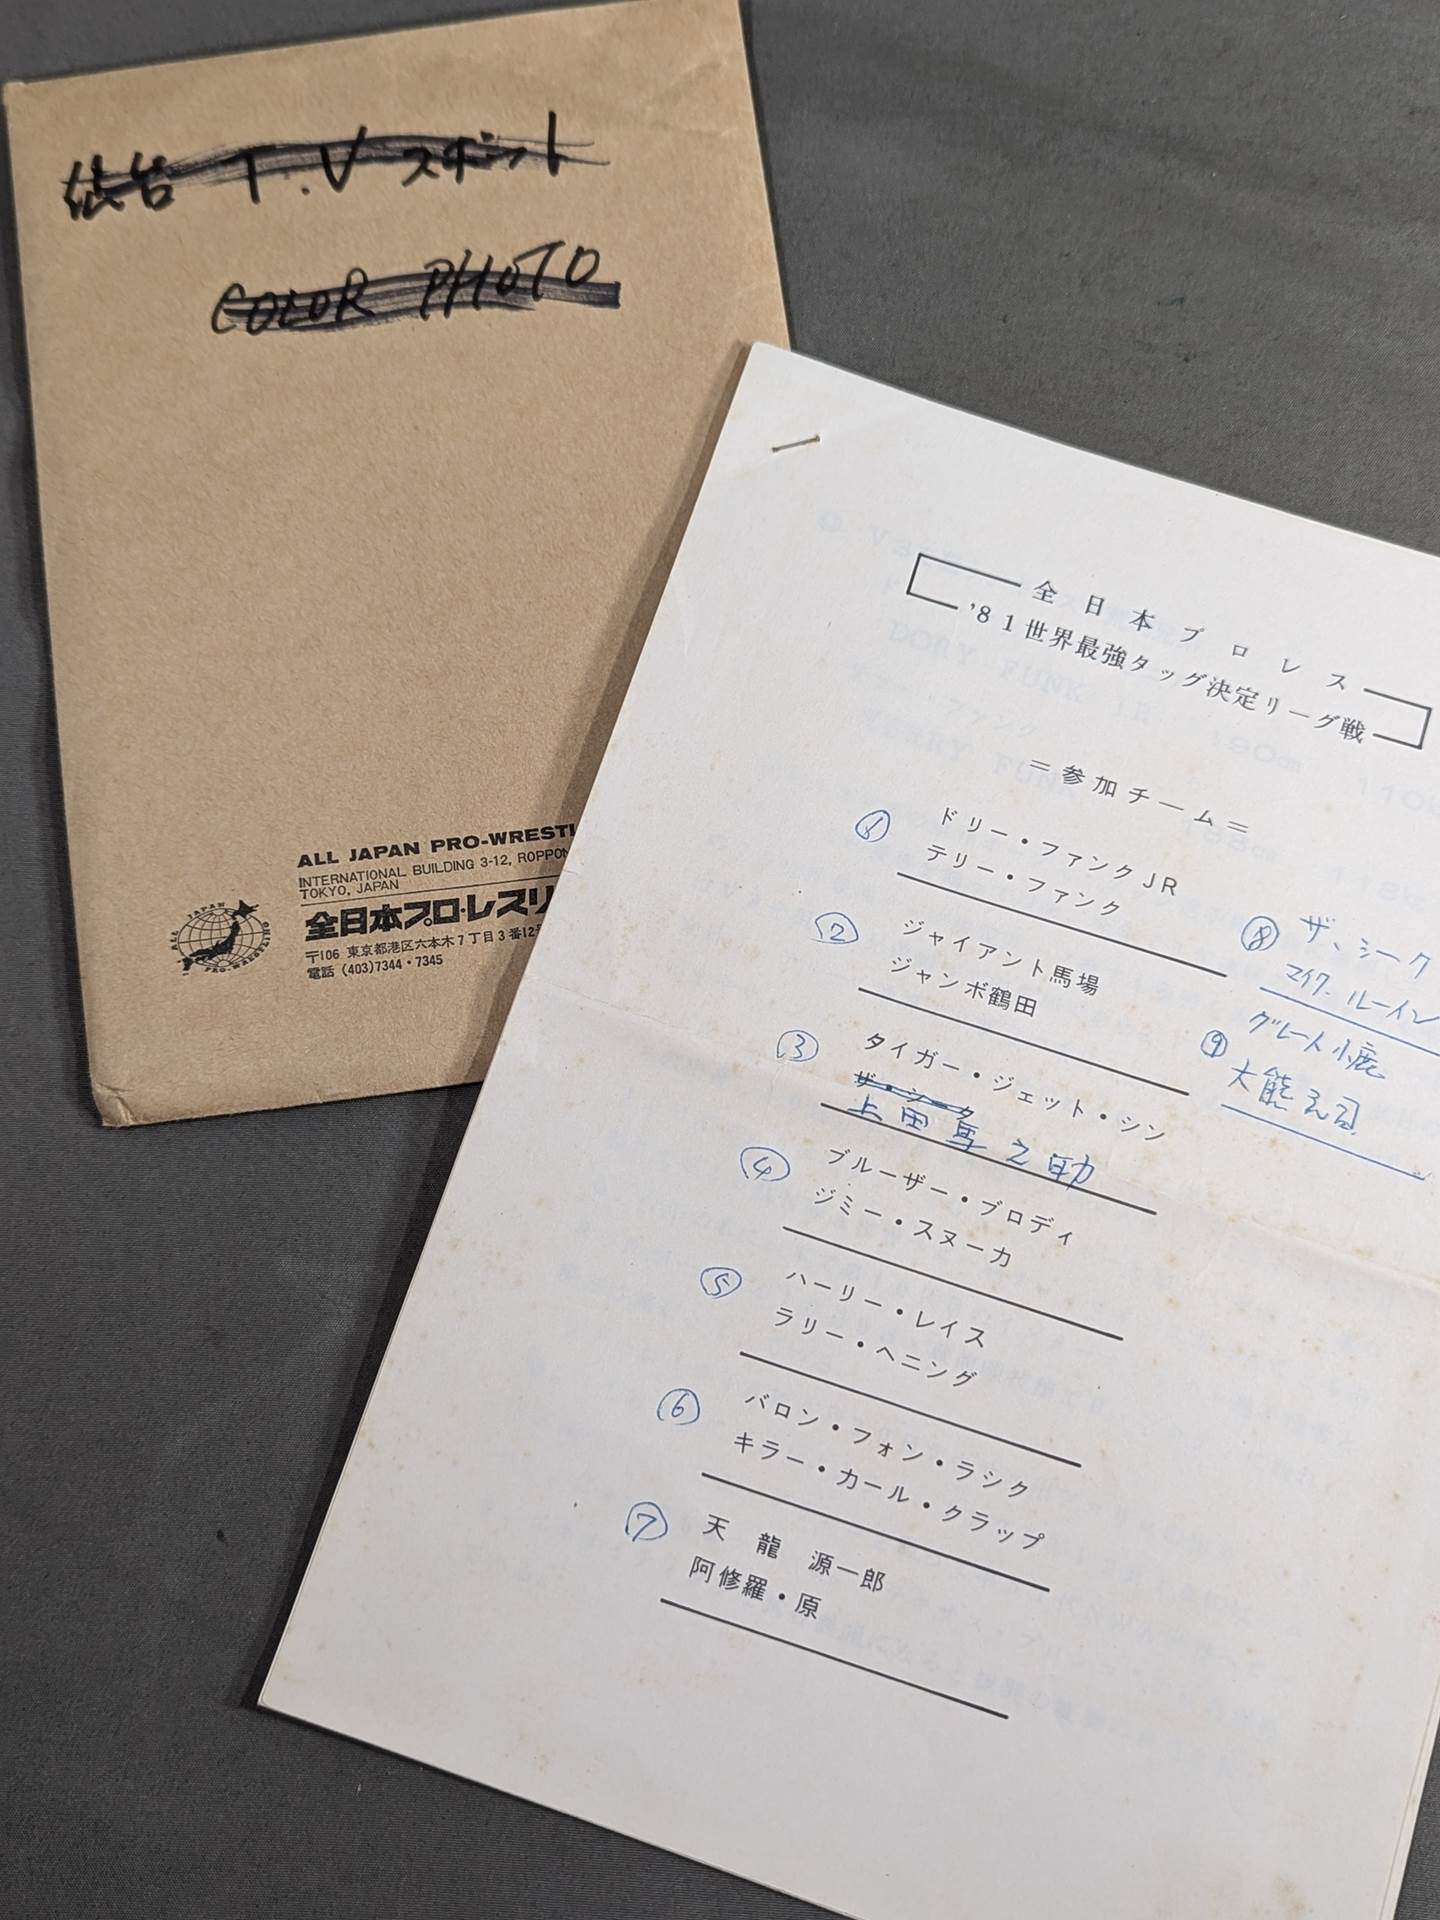 仙台 T.V スポット
COLOR PHOTO
ALL JAPAN PRO-WRESTL
INTERNATIONAL BUILDING 3-12, ROPPON
TOKYO, JAPAN
全日本プロ・レスリ
〒106 東京都港区六本木7丁目3番12号
電話 (403)7344・7345
ALL JAPAN PRO-WRESTLING
全日本プロレス
'81世界最強タッグ決定リーグ戦
=参加チーム=
① ドリー・ファンクJR
テリー・ファンク
② ジャイアント馬場
ジャンボ鶴田
③ タイガー・ジェット・シン
ザ・シーク
上田馬之助
④ ブルーザー・ブロディ
ジミー・スヌーカ
⑤ ハーリー・レイス
ラリー・ヘニング
⑥ バロン・フォン・ラシク
キラー・カール・クラップ
⑦ 天龍 源一郎
阿修羅・原
⑧ ザ、シーク
マイク・ルーイン
⑨ グレート小鹿
大熊元司
DORY FUNK JR 190cm
TERRY FUNK